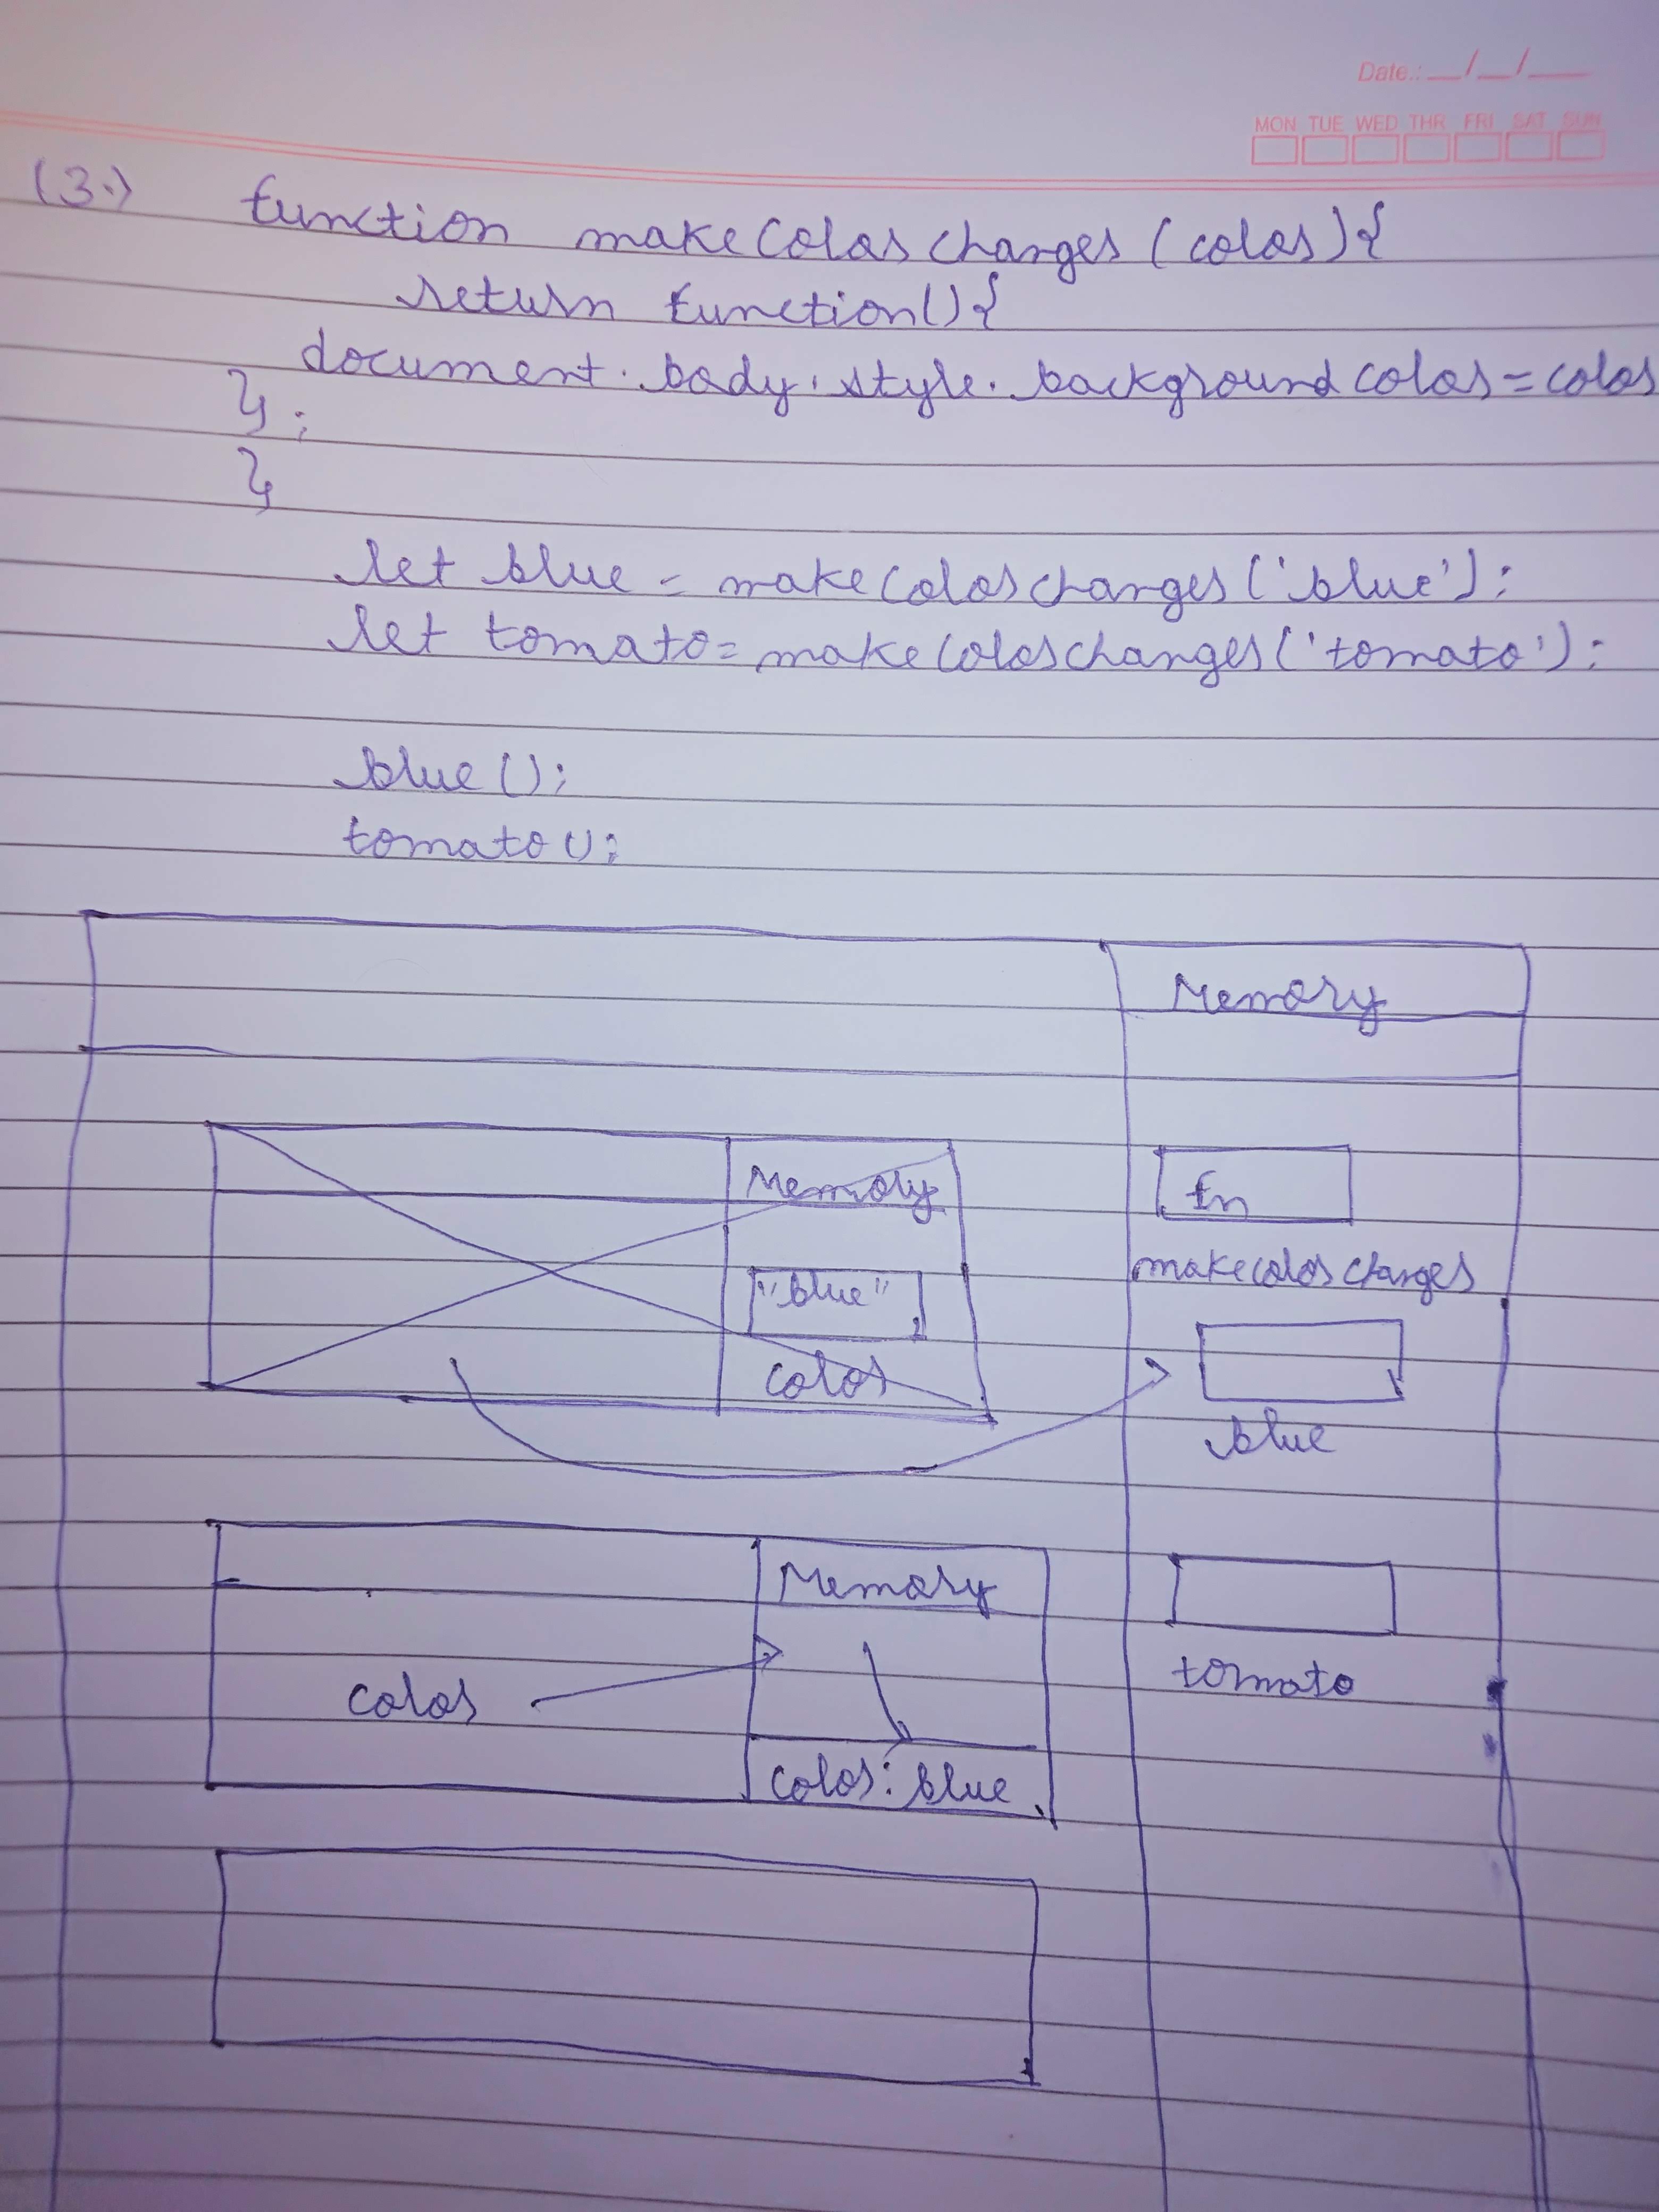 Date.: __/__/___
MON TUE WED THR FRI SAT SUN
(3.) function makeColorchanger (color){
return function(){
document.body.style.backgroundcolor=color
};
}
let blue = makeColorchanger('blue');
let tomato= makeColorchanger('tomato');
blue ();
tomato ();
Memory
Memory
fn
makecolorchanger
"blue"
color
blue
Memory
tomato
color
color: blue